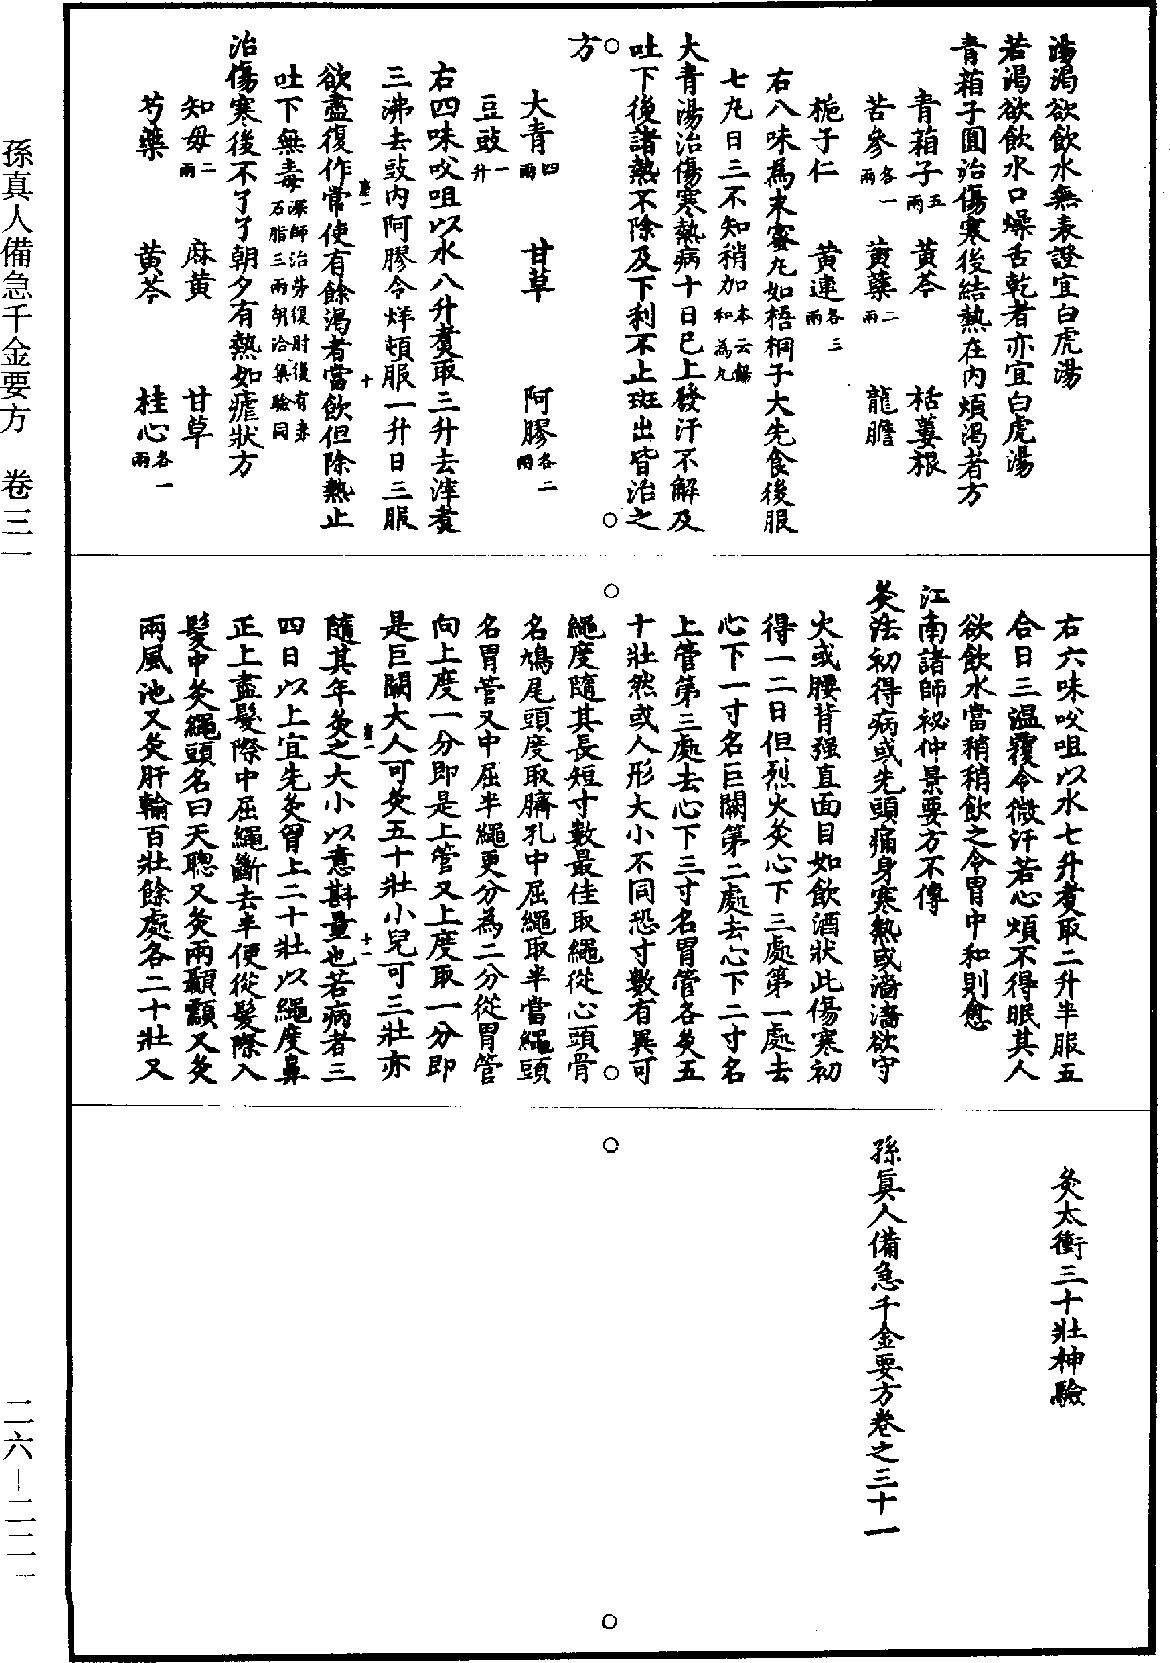 湯渴欲飲水無表證宜白虎湯
若渴欲飲水口燥舌乾者亦宜白虎湯
青葙子圓治傷寒後結熱在内煩渴者方
青葙子五兩 黄芩 栝蔞根
苦參各一兩 黄蘗二兩 龍膽
梔子仁 黄連各三兩
右八味爲末蜜丸如梧桐子大先食後服
七丸日三不知稍加本云餳和爲丸
大青湯治傷寒熱病十日已上發汗不解及
吐下後諸熱不除及下利不止斑出皆治之
方
大青四兩 甘草 阿膠各二兩
豆豉一升
右四味㕮咀以水八升煑取三升去滓煑
三沸去豉内阿膠令烊頓服一升日三服
欲盡復作常使有餘渴者當飲但除熱止
吐下無毒深師治勞復肘後有赤石脂三兩胡洽集驗同
治傷寒後不了了朝夕有熱如瘧狀方
知毋二兩 麻黄 甘草
芍藥 黄芩 桂心各一兩
右六味㕮咀以水七升煑取二升半服五
合日三温覆令微汗若心煩不得眠其人
欲飲水當稍稍飲之令胃中和則愈
江南諸師祕仲景要方不傳
灸法初得病或先頭痛身寒熱或濇濇欲守
火或腰背强直面目如飲酒狀此傷寒初
得一二日但烈火灸心下三處第一處去
心下一寸名巨闕第二處去心下二寸名
上管第三處去心下三寸名胃管各灸五
十壯然或人形大小不同恐寸數有異可
繩度隨其長短寸數最佳取繩從心頭骨
名鳩尾頭度取臍孔中屈繩取半當繩頭
名胃管又中屈半繩更分為二分從胃管
向上度一分即是上管又上度取一分即
是巨闕大人可灸五十壯小兒可三壯亦
隨其年灸之大小以意斟量也若病者三
四日以上宜先灸胷上二十壯以繩度鼻
正上盡髮際中屈繩斷去半便從髮際入
髮中灸繩頭名曰天聰又灸兩顳顬又灸
兩風池又灸肝輸百壯餘處各二十壯又
灸太衝三十壯神驗
孫真人備急千金要方卷之三十一
孫真人備急千金要方 卷三一
二六－二二一